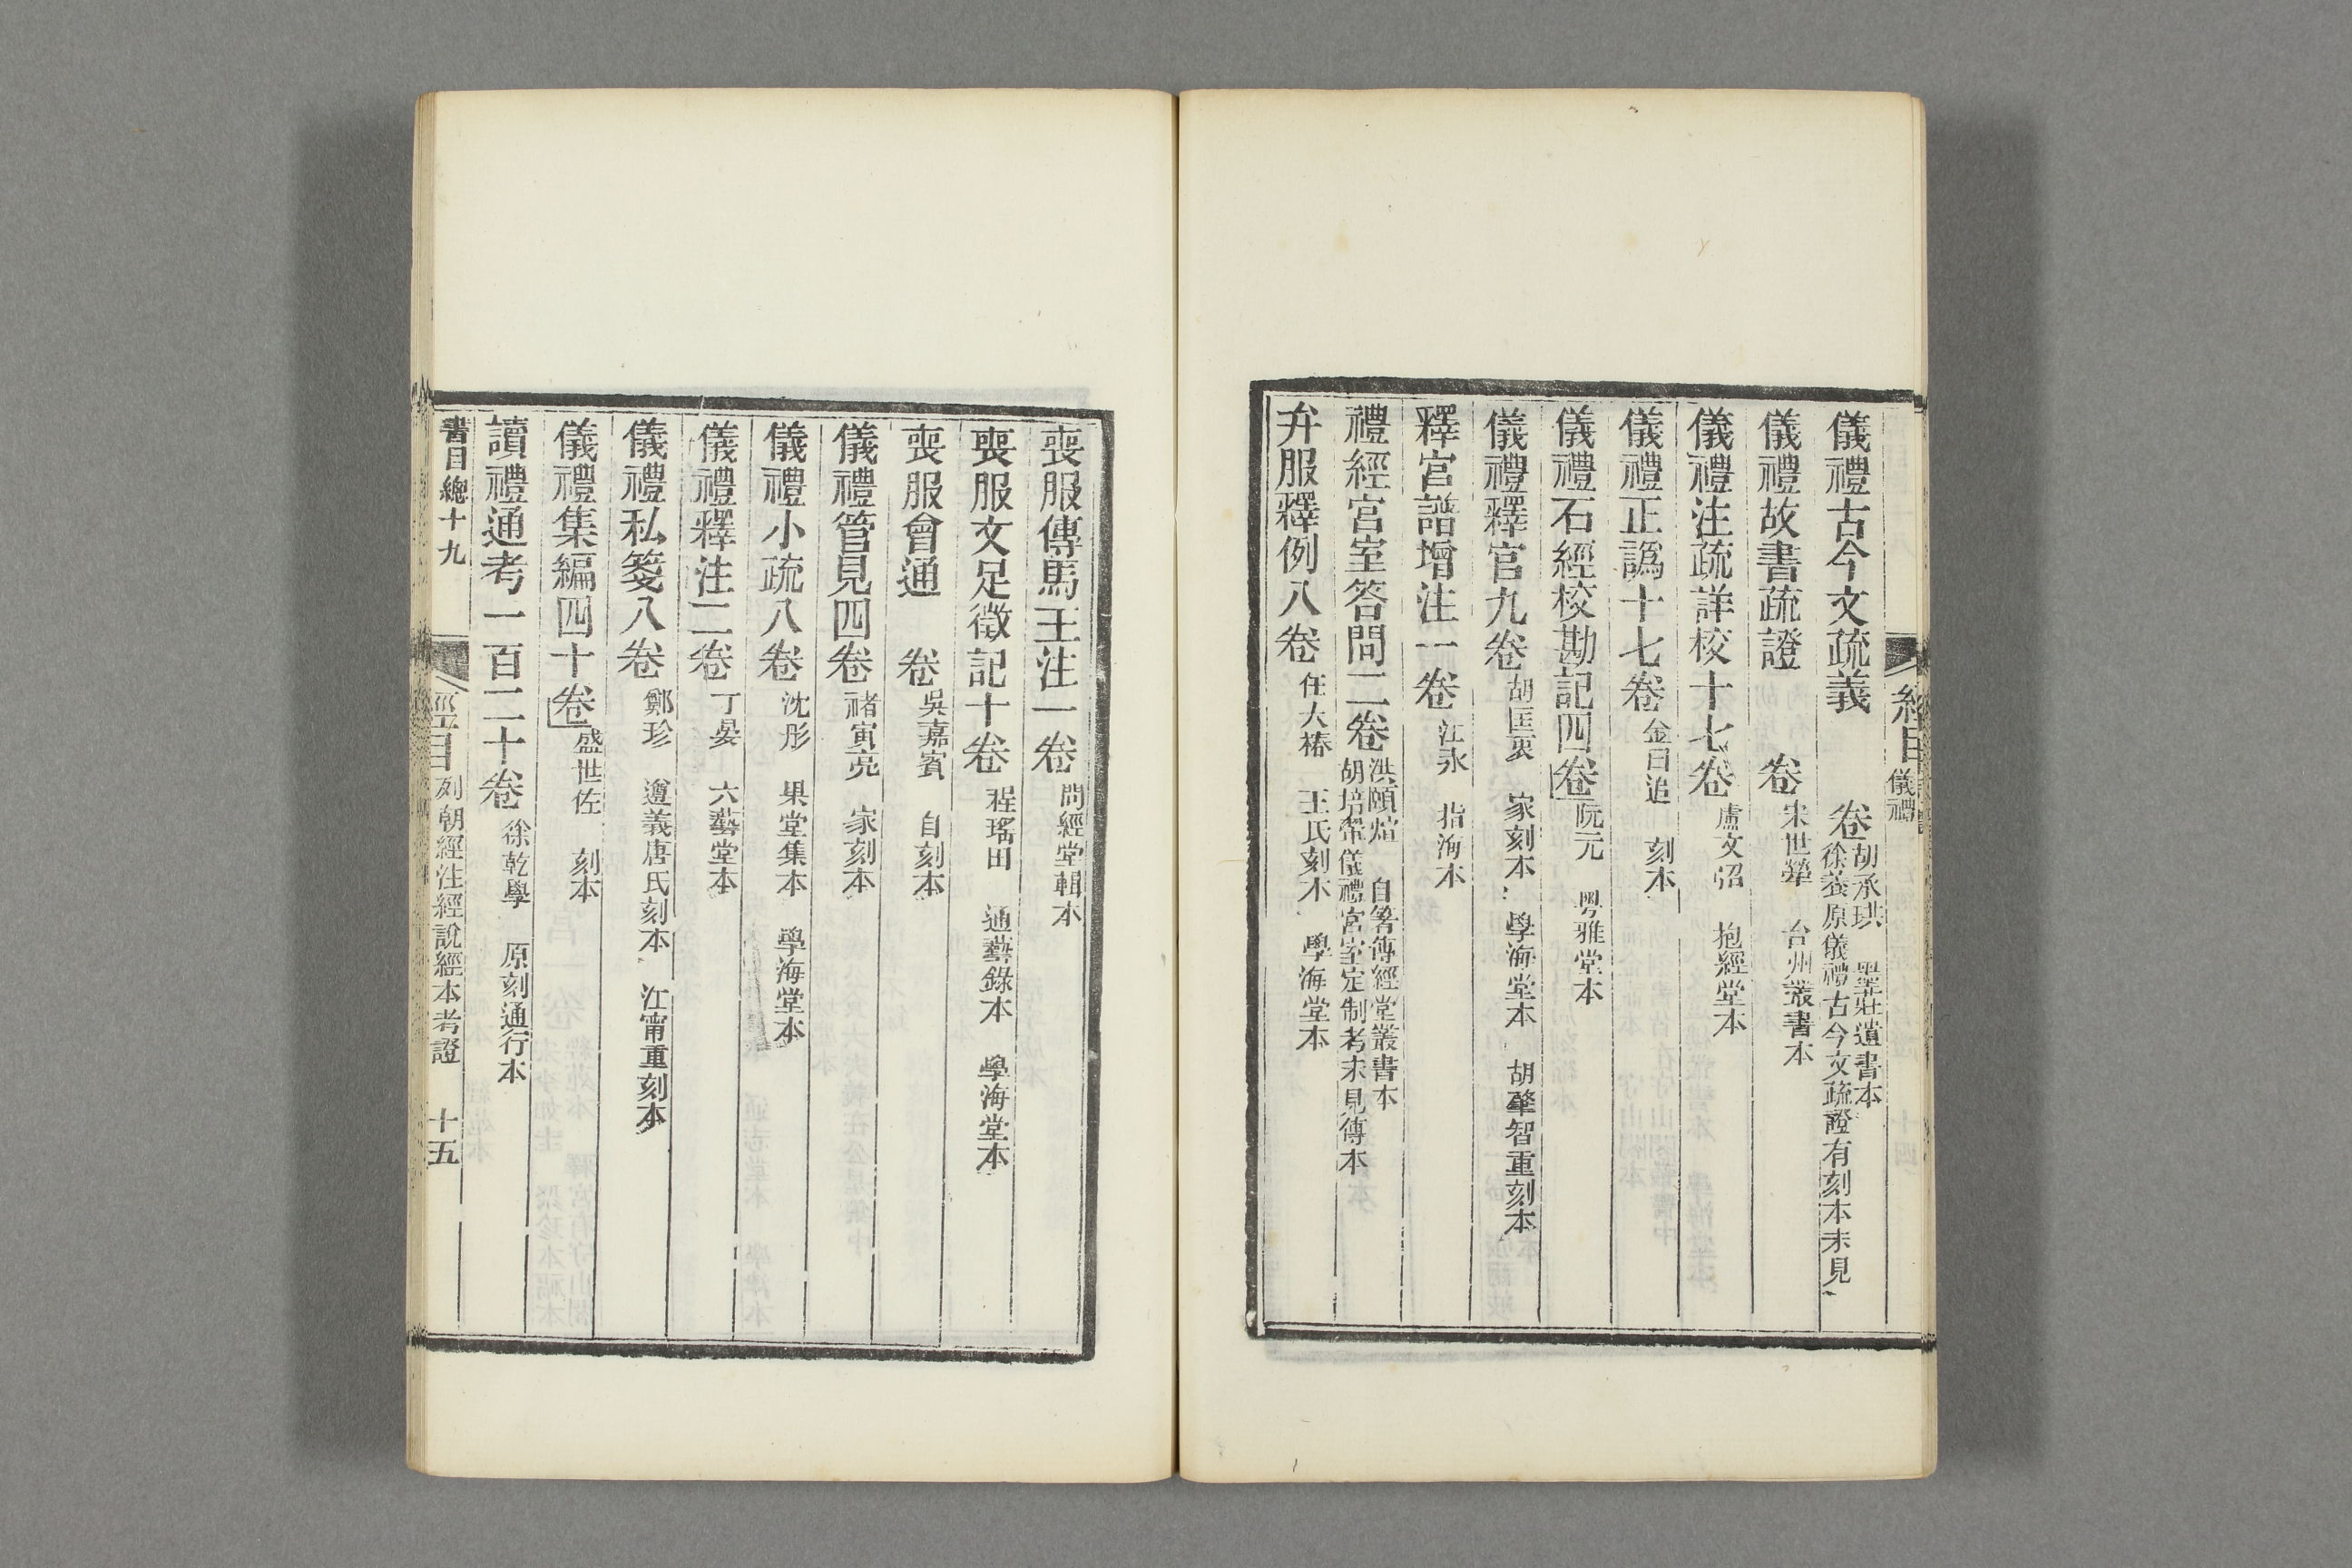 經目 儀禮
儀禮古今文疏義 卷 胡承珙 墨莊遺書本
徐養原儀禮古今文疏證有刻本未見
儀禮故書疏證 卷 宋世犖 台州叢書本
儀禮注疏詳校十七卷 盧文弨 抱經堂本
儀禮正譌十七卷 金曰追 刻本
儀禮石經校勘記四卷 阮元 粤雅堂本
儀禮釋官九卷 胡匡衷 家刻本 學海堂本 胡肇智重刻本
釋宮譜增注一卷 江永 指海本
禮經宮室答問二卷 洪頤煊 自著傳經堂叢書本
胡培翬儀禮宮室定制考未見傳本
弁服釋例八卷 任大椿 王氏刻本 學海堂本
喪服傳馬王注一卷 問經堂輯本
喪服文足徵記十卷 程瑤田 通藝錄本 學海堂本
喪服會通 卷 吳嘉賓 自刻本
儀禮管見四卷 褚寅亮 家刻本
儀禮小疏八卷 沈彤 果堂集本 學海堂本
儀禮釋注二卷 丁晏 六藝堂本
儀禮私箋八卷 鄭珍 遵義唐氏刻本 江甯重刻本
儀禮集編四十卷 盛世佐 刻本
讀禮通考一百二十卷 徐乾學 原刻通行本
書目總十九 經目 列朝經注經說經本考證 十五